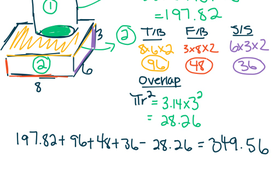 = 197.82
①
② T/B F/B S/S
3
8x6x2 3x8x2 6x3x2
96 48 36
②
6
8
Overlap
πr² = 3.14x3²
= 28.26
197.82 + 96 + 48 + 36 - 28.26 = 349.56